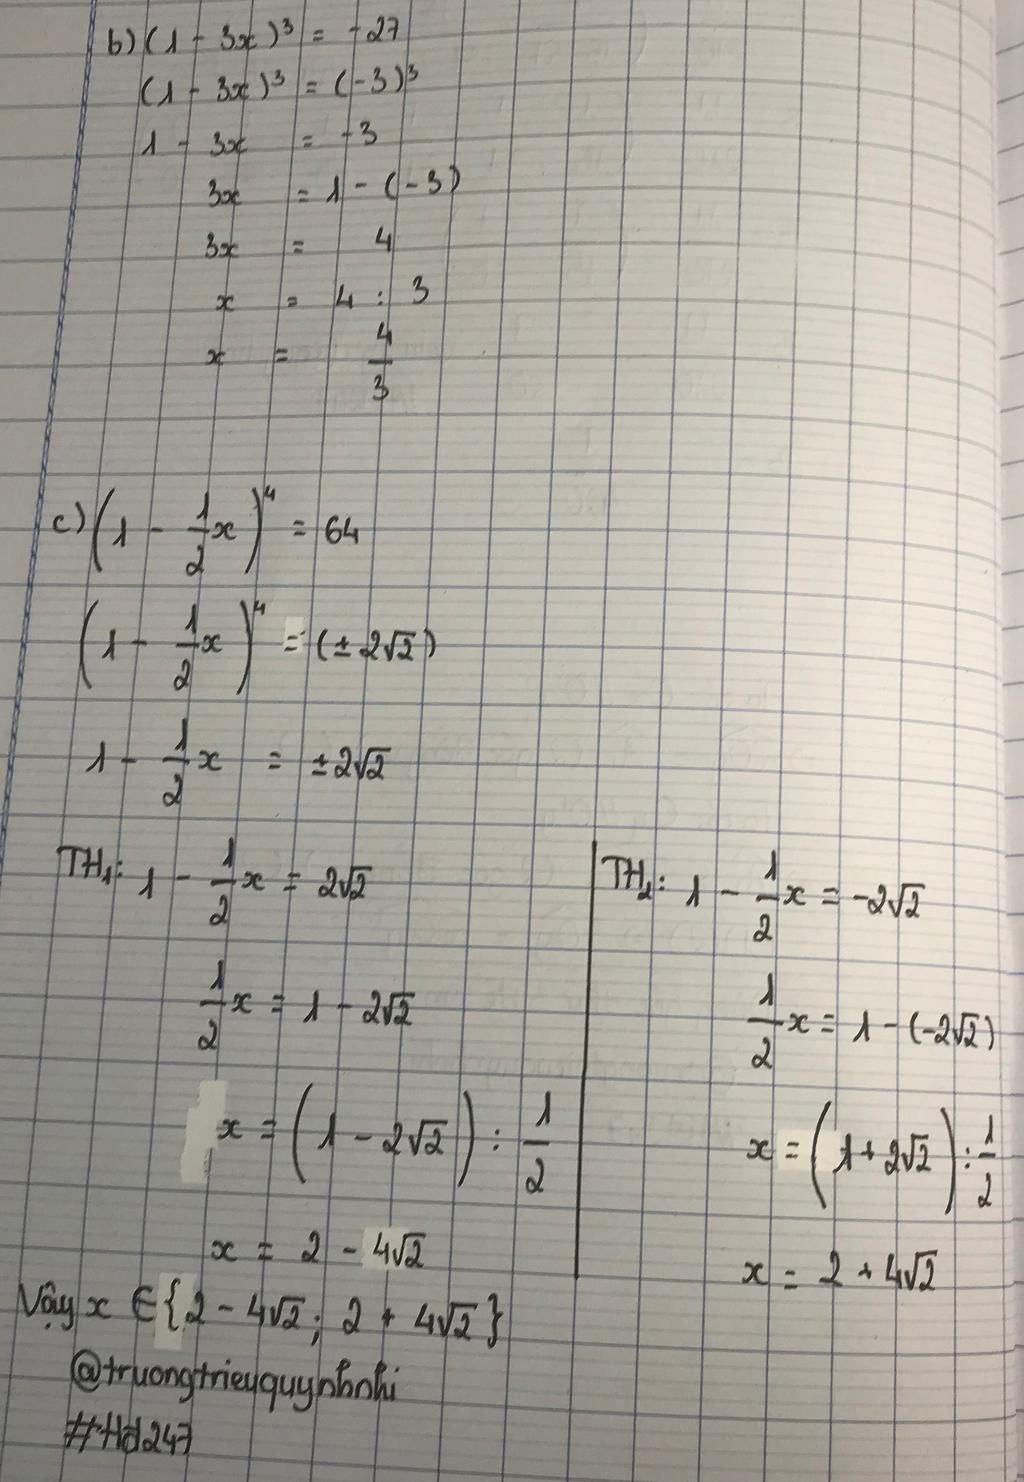 b) (1 - 3x)³ = -27
(1 - 3x)³ = (-3)³
1 - 3x = -3
3x = 1 - (-3)
3x = 4
x = 4 : 3
x = 4/3
c) (1 - 1/2 x)⁴ = 64
(1 - 1/2 x)⁴ = (± 2√2)
1 - 1/2 x = ±2√2
TH₁: 1 - 1/2 x = 2√2
1/2 x = 1 - 2√2
x = (1 - 2√2) : 1/2
x = 2 - 4√2
TH₂: 1 - 1/2 x = -2√2
1/2 x = 1 - (-2√2)
x = (1 + 2√2) : 1/2
x = 2 + 4√2
Vậy x ∈ {2 - 4√2; 2 + 4√2}
@truongtrieuquynhnhi
#Hd247